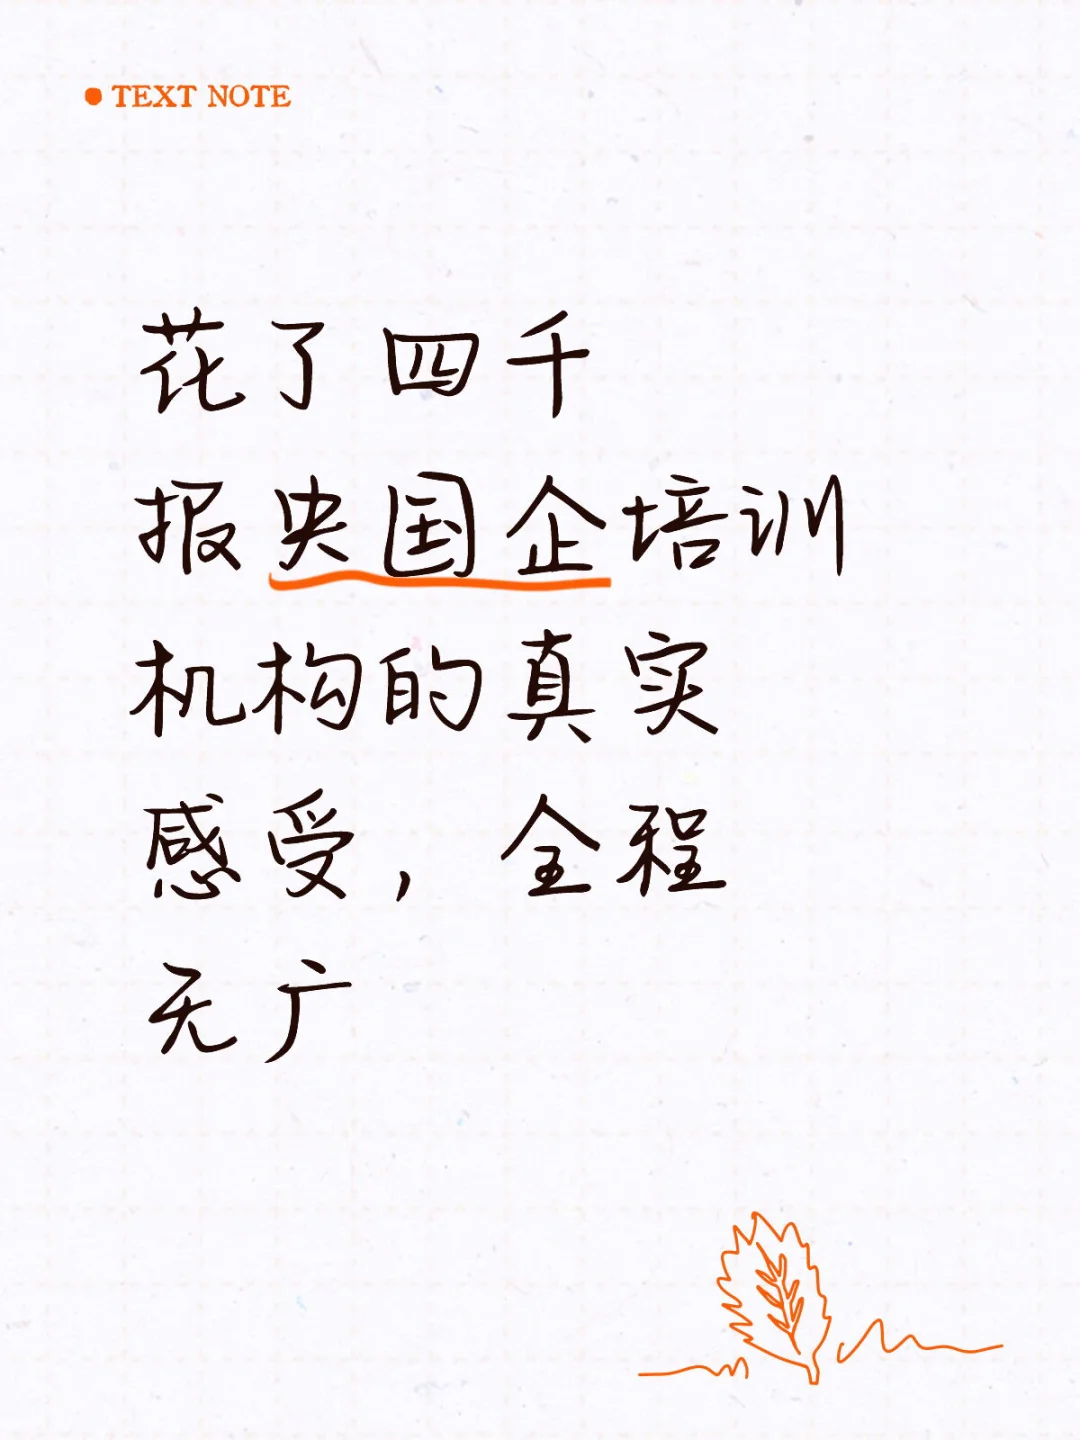 TEXT NOTE
花了四千
报央国企培训
机构的真实
感受，全程
无广